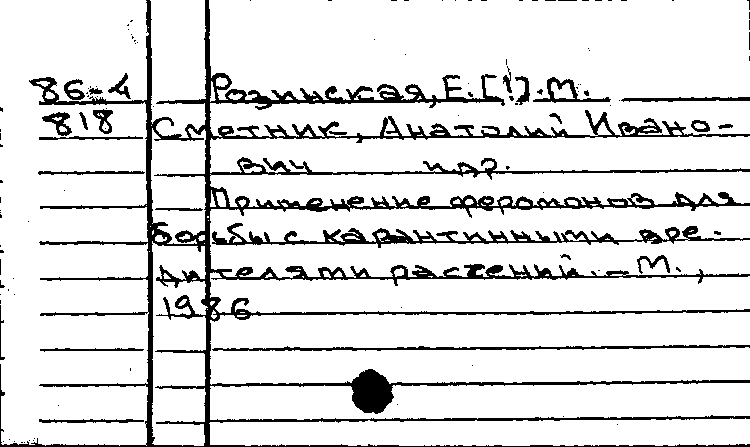 86-4 Розинская, Е.[!].М.
818 Сметник, Анатолий Ивано-
вич и др.
Применение феромонов для
борьбы с карантинными вре-
дителями растений. – М.,
1986.